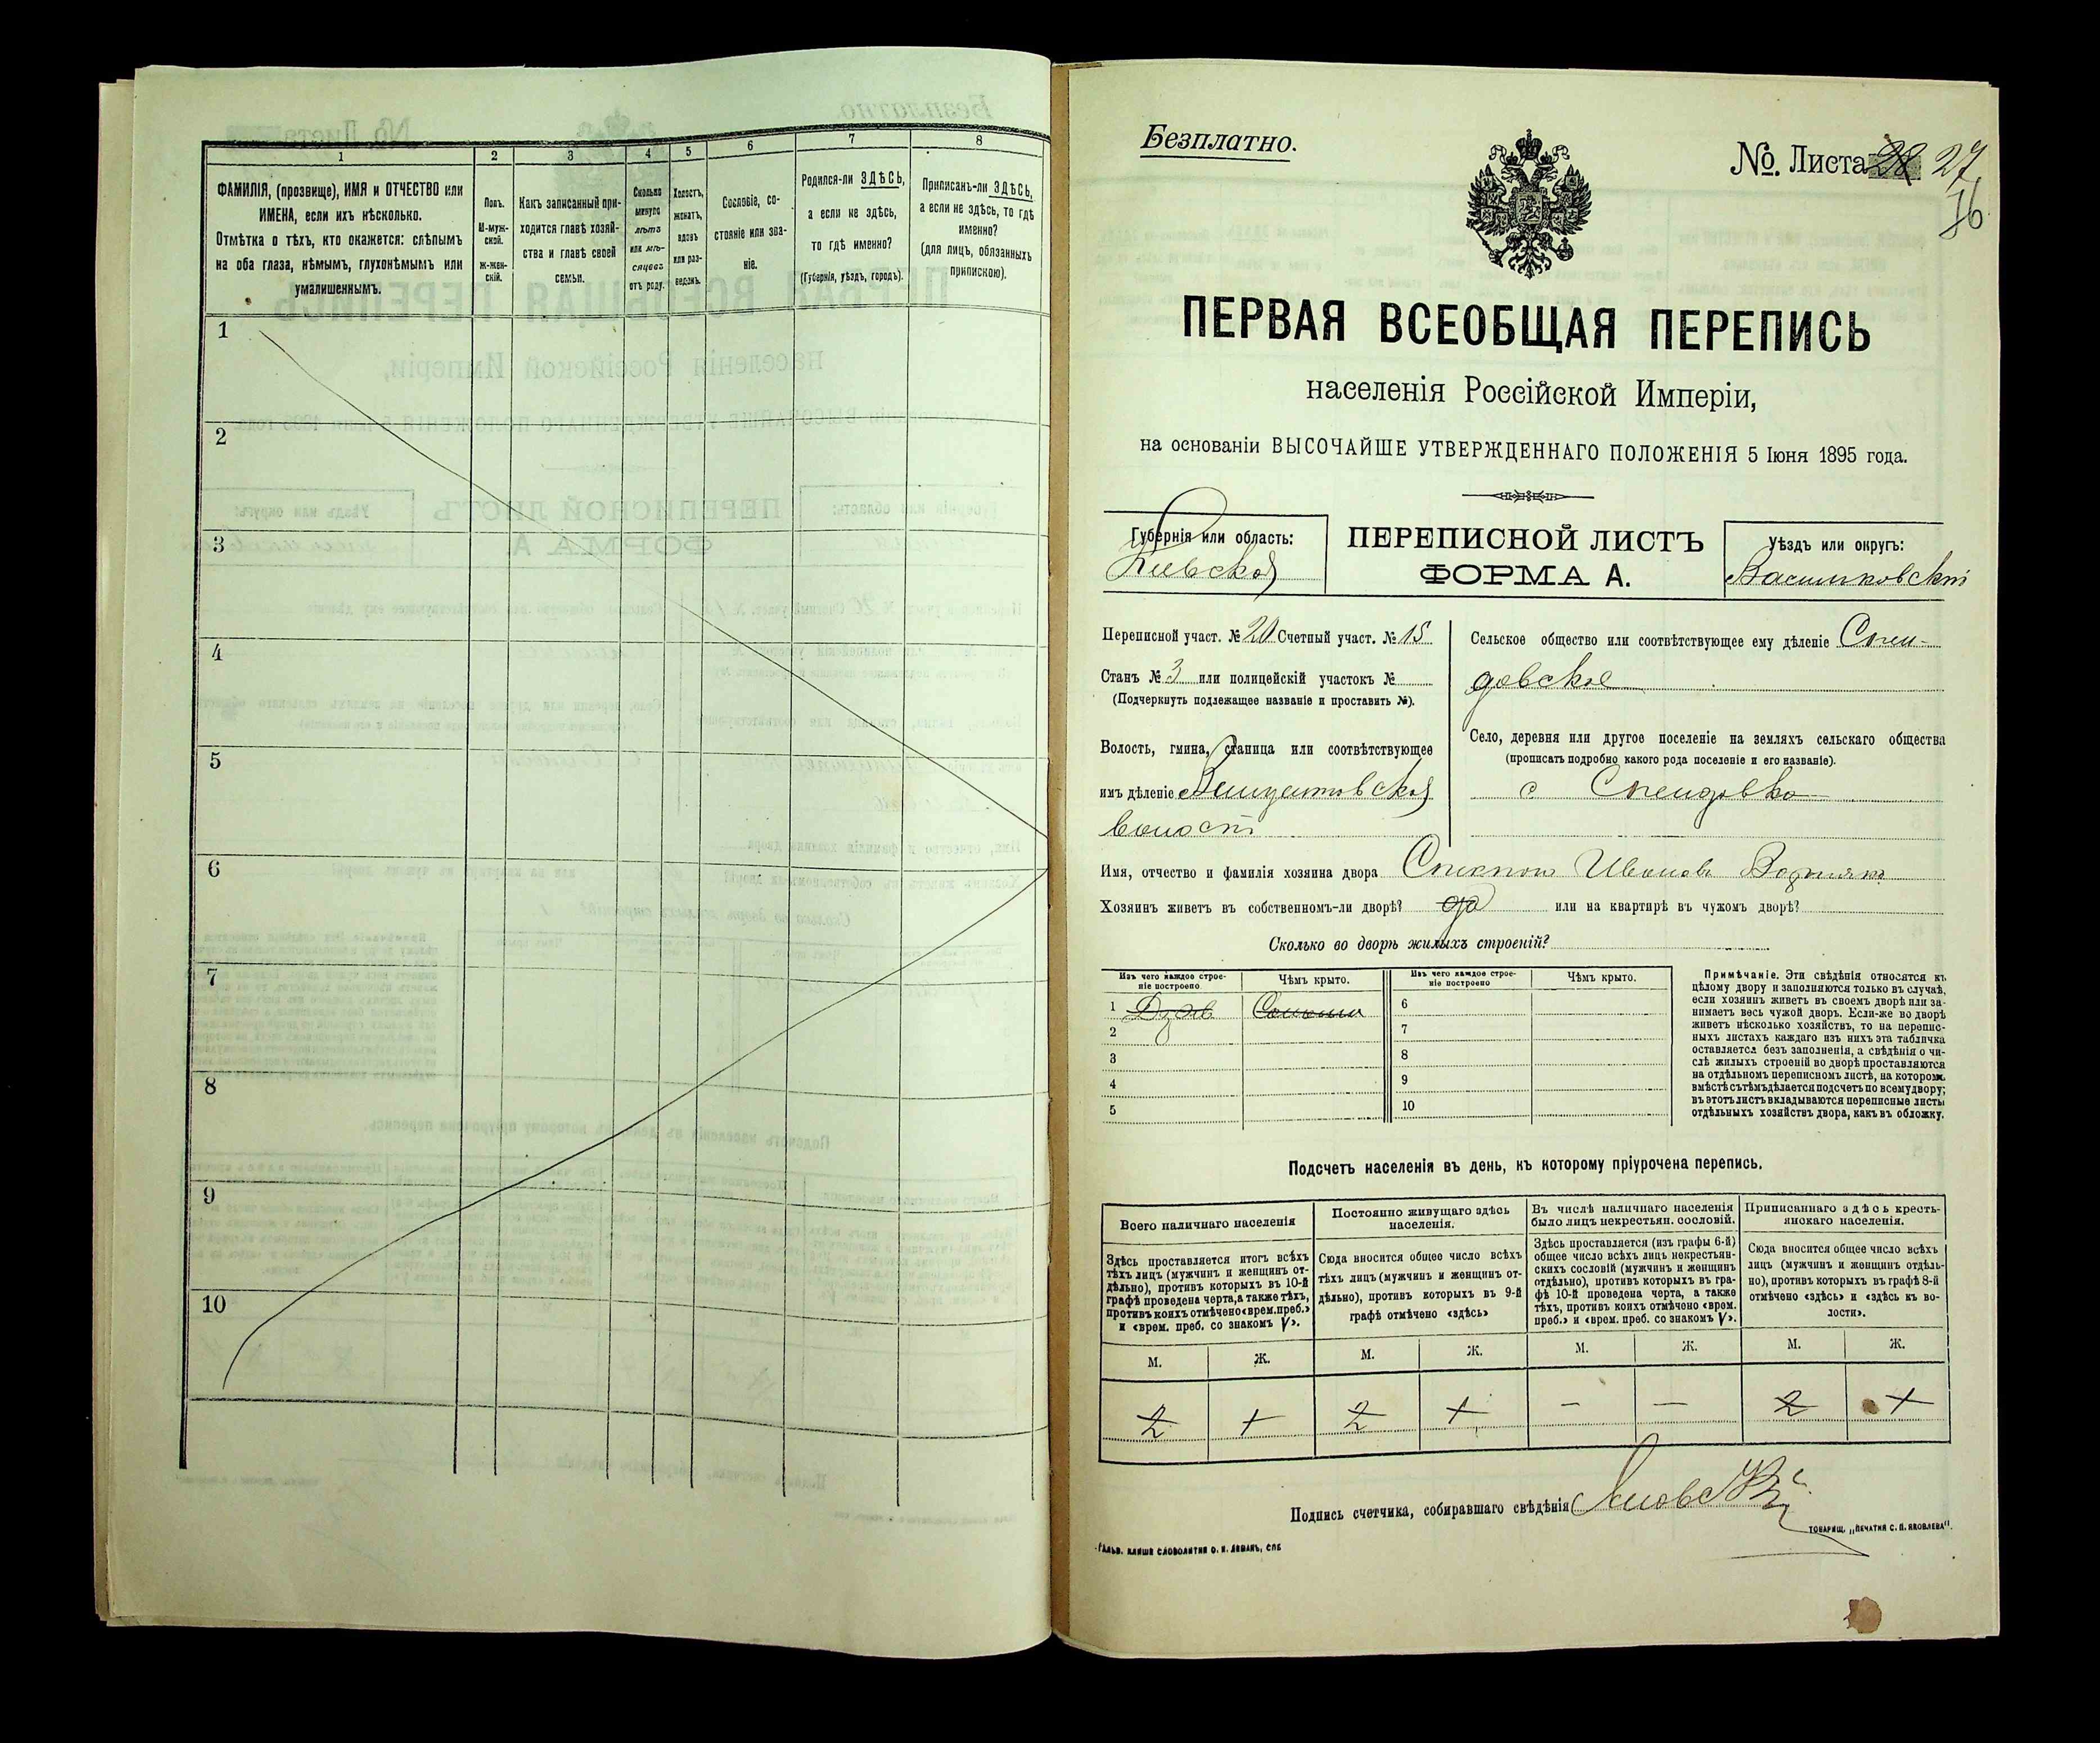 1 2 3 4 5 6 7 8
ФАМИЛІЯ, (прозвище), ИМЯ и ОТЧЕСТВО или
ИМЕНА, если ихъ нѣсколько.
Отмѣтка о тѣхъ, кто окажется: слѣпымъ
на оба глаза, нѣмымъ, глухонѣмымъ или
умалишеннымъ.
Полъ.
М-муж-
ской.
Ж-жен-
скій.
Какъ записанный при-
ходится главѣ хозяй-
ства и главѣ своей
семьи.
Сколько
минуло
лѣтъ
или мѣ-
сяцевъ
отъ роду.
Холостъ,
женатъ,
вдовъ
или раз-
веденъ.
Сословіе, со-
стояніе или зва-
ніе.
Родился-ли ЗДѢСЬ,
а если не здѣсь,
то гдѣ именно?
(Губернія, уѣздъ, городъ).
Приписанъ-ли ЗДѢСЬ,
а если не здѣсь, то гдѣ
именно?
(для лицъ, обязанныхъ
припискою).
1
2
3
4
5
6
7
8
9
10
Безплатно.
№. Листа 28 27
76
ПЕРВАЯ ВСЕОБЩАЯ ПЕРЕПИСЬ
населенія Россійской Имперіи,
на основаніи ВЫСОЧАЙШЕ УТВЕРЖДЕННАГО ПОЛОЖЕНІЯ 5 Іюня 1895 года.
Губернія или область:
Кіевская
ПЕРЕПИСНОЙ ЛИСТЪ
ФОРМА А.
Уѣздъ или округъ:
Васильковскій
Переписной участ. № 20 Счетный участ. № 15
Станъ № 3 или полицейскій участокъ №
(Подчеркнуть подлежащее названіе и проставить №).
Волость, гмина, станица или соотвѣтствующее
имъ дѣленіе Винцентовской
волости
Сельское общество или соотвѣтствующее ему дѣленіе Спен-
довское
Село, деревня или другое поселеніе на земляхъ сельскаго общества
(прописать подробно какого рода поселеніе и его названіе).
с Спендовка
Имя, отчество и фамилія хозяина двора Ивановъ
Хозяинъ живетъ въ собственномъ-ли дворѣ? да или на квартирѣ въ чужомъ дворѣ?
Сколько во дворѣ жилыхъ строеній?
Изъ чего каждое строе-
ніе построено
Чѣмъ крыто.
Изъ чего каждое строе-
ніе построено
Чѣмъ крыто.
1 Дерев Солома
2
3
4
5
6
7
8
9
10
Примѣчаніе. Эти свѣдѣнія относятся къ
цѣлому двору и заполняются только въ случаѣ,
если хозяинъ живетъ въ своемъ дворѣ или за-
нимаетъ весь чужой дворъ. Если-же во дворѣ
живетъ нѣсколько хозяйствъ, то на перепис-
ныхъ листахъ каждаго изъ нихъ эта табличка
оставляется безъ заполненія, а свѣдѣнія о чи-
слѣ жилыхъ строеній во дворѣ проставляются
на отдѣльномъ переписномъ листѣ, на которомъ
вмѣстѣ съ тѣмъ дѣлается подсчетъ по всему двору;
въ этотъ листъ вкладываются переписные листы
отдѣльныхъ хозяйствъ двора, какъ въ обложку.
Подсчетъ населенія въ день, къ которому пріурочена перепись.
Всего наличнаго населенія
Здѣсь проставляется итогъ всѣхъ
тѣхъ лицъ (мужчинъ и женщинъ от-
дѣльно), противъ которыхъ въ 10-й
графѣ проведена черта, а также тѣхъ,
противъ коихъ отмѣчено «врем. преб.»
и «врем. преб. со знакомъ V».
Постоянно живущаго здѣсь
населенія.
Сюда вносится общее число всѣхъ
тѣхъ лицъ (мужчинъ и женщинъ от-
дѣльно), противъ которыхъ въ 9-й
графѣ отмѣчено «здѣсь»
Въ числѣ наличнаго населенія
было лицъ некрестьян. сословій.
Здѣсь проставляется (изъ графы 6-й)
общее число всѣхъ лицъ некрестьян-
скихъ сословій (мужчинъ и женщинъ
отдѣльно), противъ которыхъ въ гра-
фѣ 10-й проведена черта, а также
тѣхъ, противъ коихъ отмѣчено «врем.
преб.» и «врем. преб. со знакомъ V».
Приписаннаго здѣсь кресть-
янскаго населенія.
Сюда вносится общее число всѣхъ
лицъ (мужчинъ и женщинъ отдѣль-
но), противъ которыхъ въ графѣ 8-й
отмѣчено «здѣсь» и «здѣсь къ во-
лости».
М. Ж. М. Ж. М. Ж. М. Ж.
2 1 2 1 — — 2 1
Подпись счетчика, собиравшаго свѣдѣнія
ГАЛЬВ. КЛИШЕ СЛОВОЛИТНИ О. И. ЛЕМАНЪ, СПБ
ТОВАРИЩ. „ПЕЧАТНЯ С. П. ЯКОВЛЕВА".